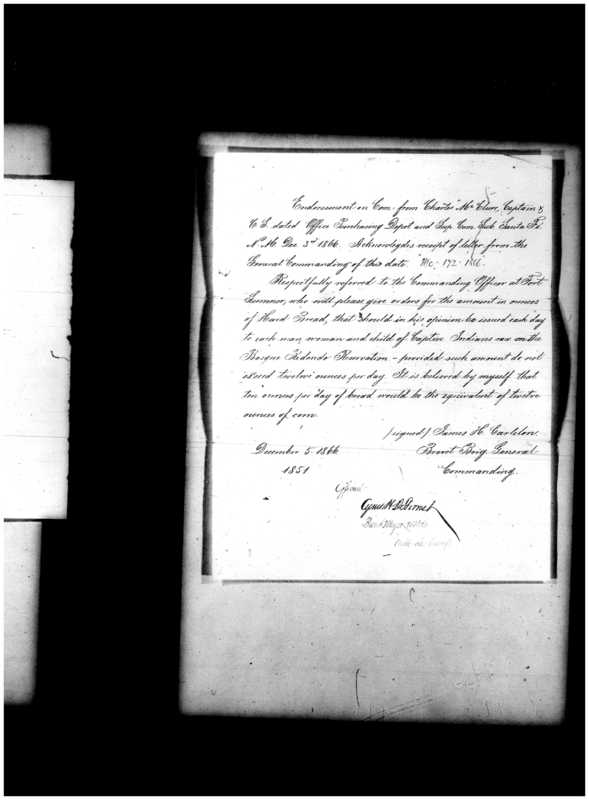 Endorsement on Com. from Charles McClure, Captain &
C. S. dated Office Purchasing Depot and Sup Com. Sub. Santa Fé.
N. M. Dec 3d 1866. Acknowledges receipt of letter from the
General Commanding of this date.
Respectfully referred to the Commanding Officer at Fort
Sumner, who will please give orders for the amount in ounces
of Hard Bread, that should in his opinion be issued each day
to each man, woman and child of Captive Indians now on the
Bosque Redondo Reservation - provided such amount do not
exceed twelve ounces per day. It is believed by myself that
ten ounces per day of bread would be the equivalent of twelve
ounces of corn.
(signed) James H. Carleton.
December 5. 1866 Brevet Brig. General
1851 Commanding.
Official
Cyrus H. DeForrest